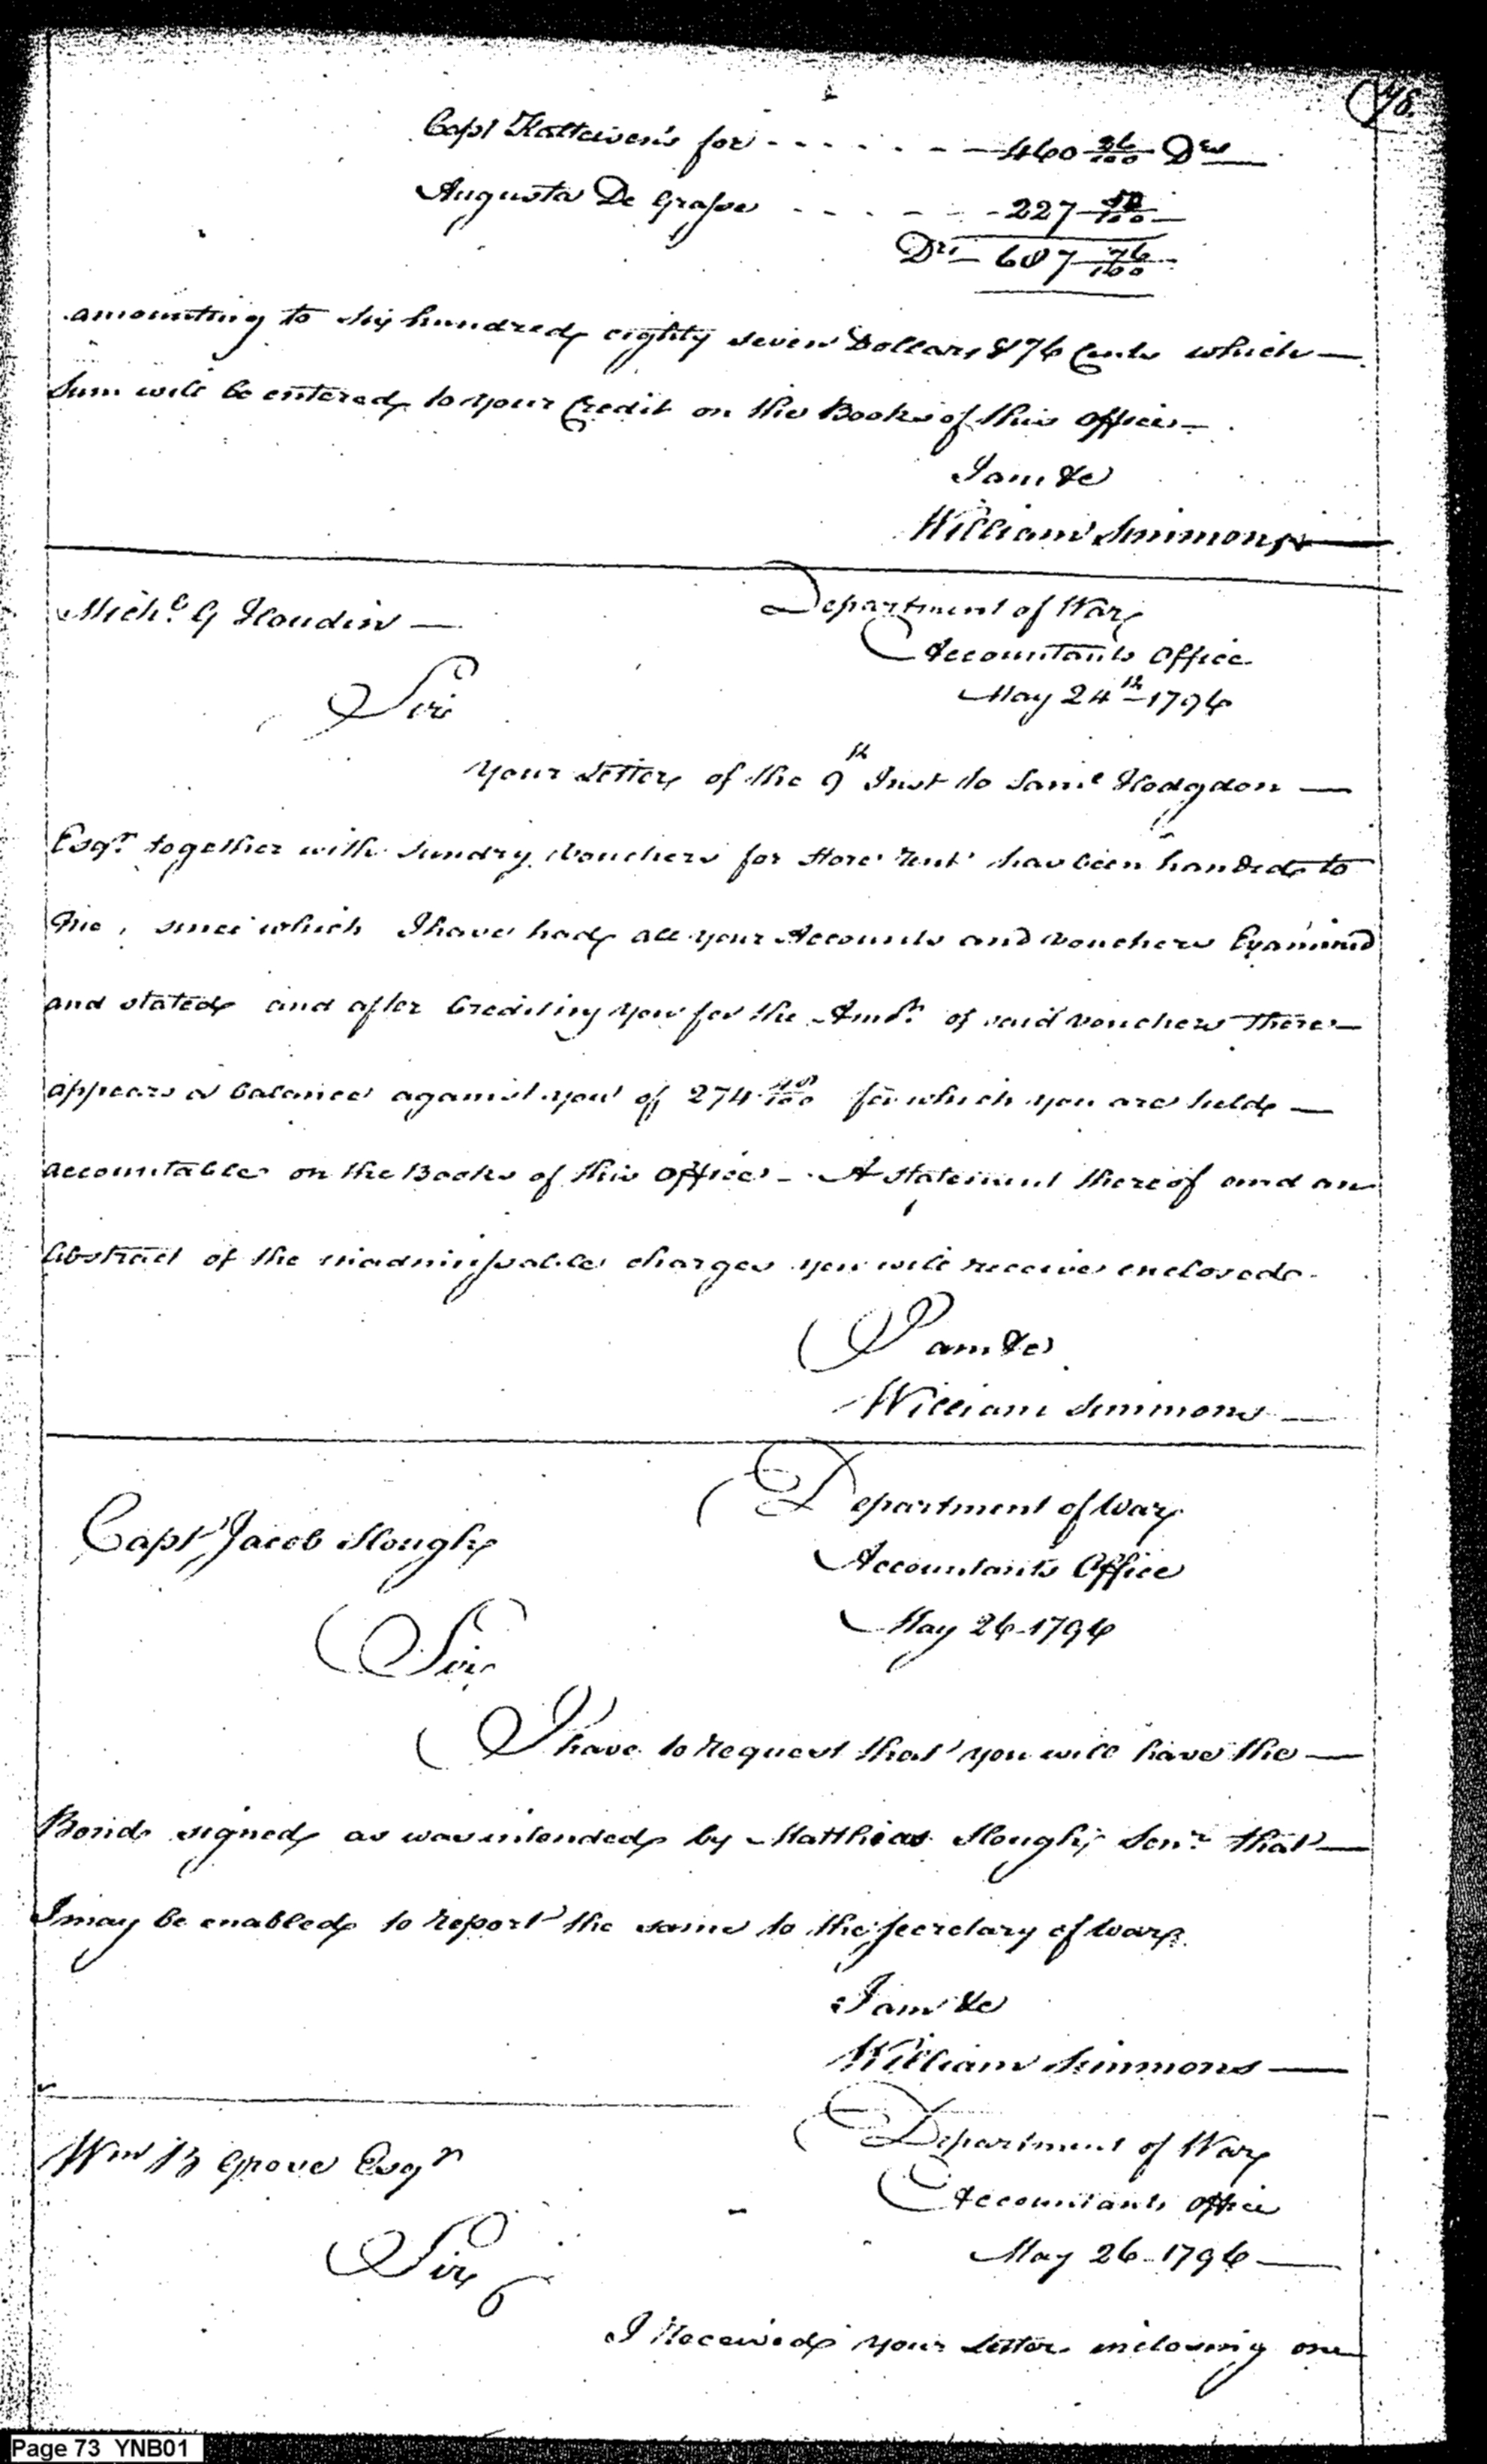 48.
Capt Kalteisen's for - - - - - - - 460 26/100 Drs
Augusta De Grasse - - - - - - 227 50/100
Drs - 687 76/100
amounting to six hundred eighty seven Dollars & 76 Cents which
Sum will be entered to your Credit on the Books of this Office.
I am &c
William Simmons
Michl. G Houdin
Department of War
Accountants Office
May 24th 1796
Sir
Your Letter of the 9th Inst to Saml Hodgdon
Esqr. together with sundry Vouchers for Store Rent has been handed to
me, since which I have had all your Accounts and Vouchers Examined
and stated and after Crediting you for the Amot. of said Vouchers there
appears a balance against you of 274 /100 for which you are held
accountable on the Books of this Office - A statement thereof and an
Abstract of the inadmissable charges you will receive enclosed.
I am &c
William Simmons
Capt Jacob Slough
Department of War
Accountants Office
May 26 1796
Sir
I have to request that you will have the
Bond signed as was intended by Matthias Slough Senr. that
I may be enabled to report the same to the Secretary of War.
I am &c
William Simmons
Wm B Grove Esqr
Department of War
Accountants Office
May 26 1796
Sir
I Received your Letter inclosing one
Page 73 YNB01